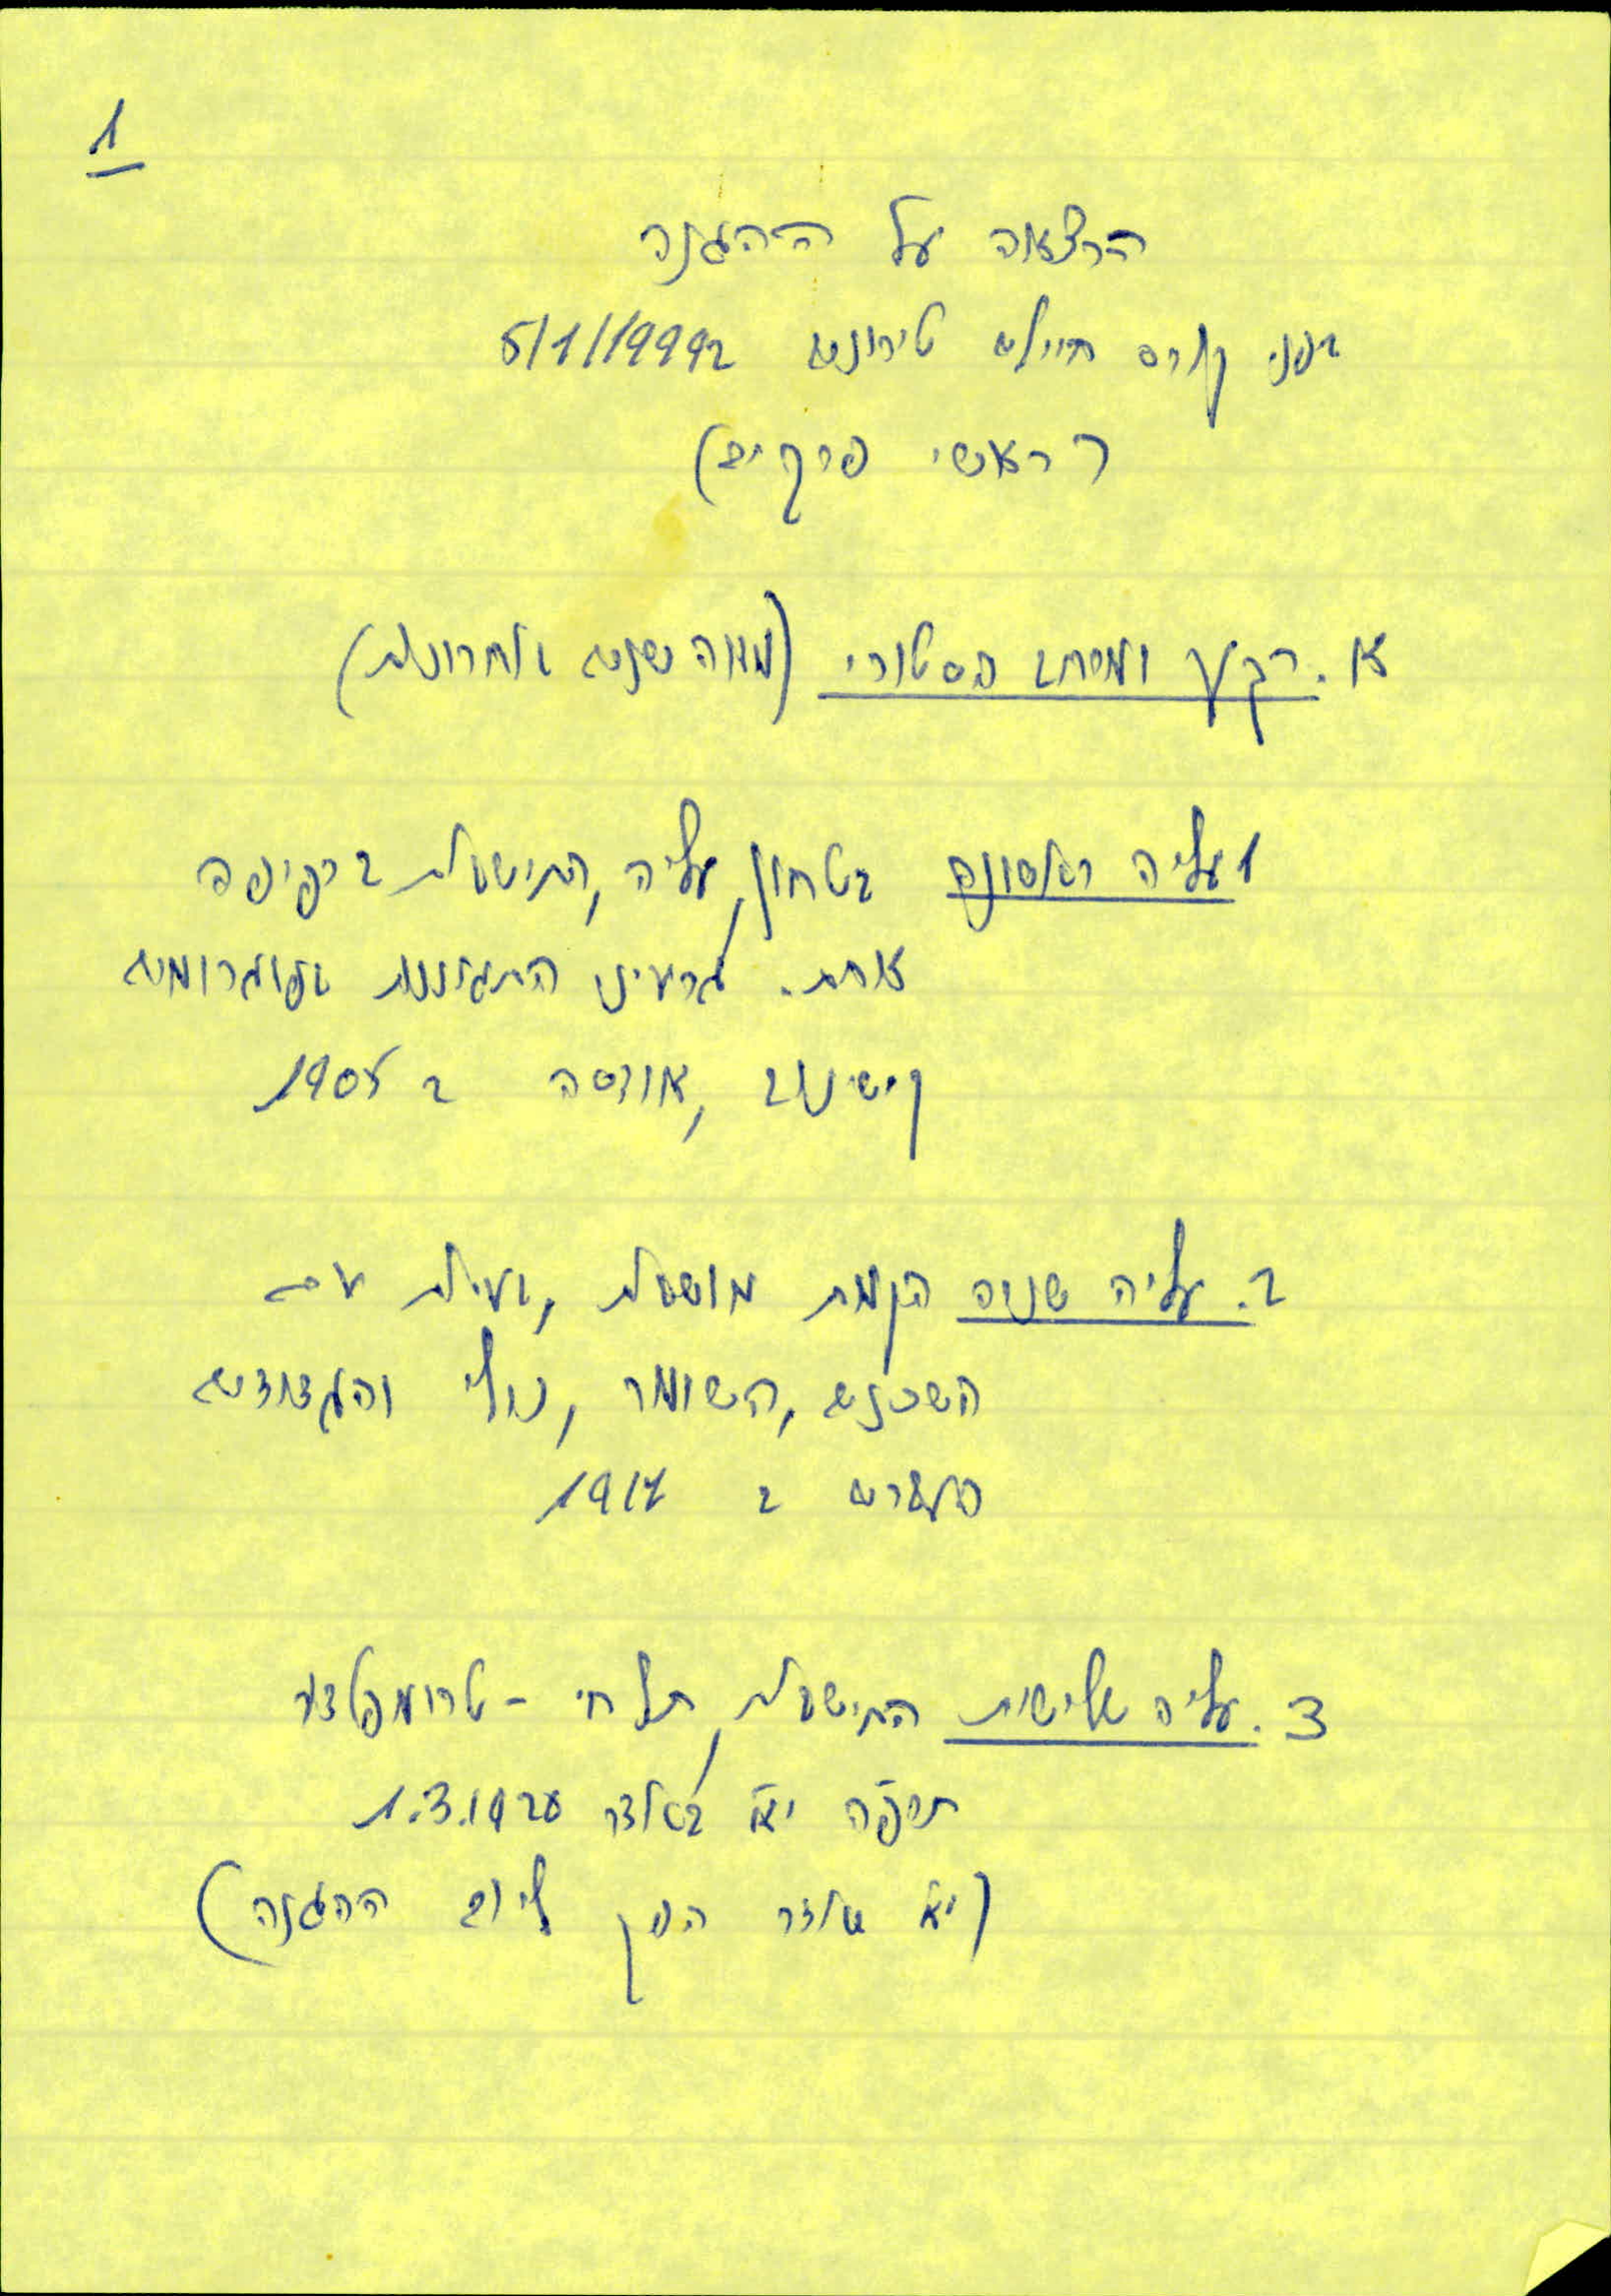 1
הרצאה על ההגנה
בפני קורס חיילים טירונים ב 5/1/1999
(ראשי פרקים)
א. רקע ומסמך הסטורי (מאה שנים אחרונות)
1 עליה ראשונה בטחון, עליה, התישבות בכפיפה
אחת. גרעיני התגוננות מפוגרומים
קישינוב, אודסה ב 1905
2. עליה שניה הקמת מושבות, נעילת עם
השכנים, השומר, נילי והגדודים
העברים ב 1917
3. עליה שלישית התישבות, תל חי - טרומפלדור
תר״פ י״א באדר 1.3.1920
(י״א אדר הפך ליום ההגנה)